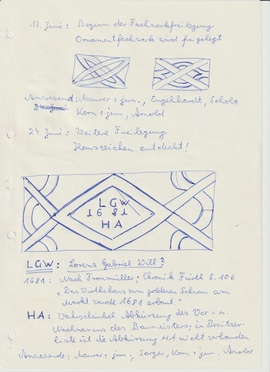 17. Juni: Beginn der Fachwerkfreilegung
Ornamentfachwerk wird freigelegt
Anwesend: Maurer + jun., Engelhardt, Scholz
Korn + jun, Arnold
24. Juni: Weitere Freilegung
Hauszeichen entdeckt!
LGW
1681
HA
LGW: Lorenz Gabriel Will?
1681: Nach Fronmüller, Chronik Fürth S. 106
"Das Wirthshaus zum goldenen Schwan am
Markt wurde 1681 erbaut"
HA: Wahrscheinlich Abkürzung des Vor- u.
Nachnamens des Baumeisters; in Besitzer-
liste ist die Abkürzung HA nicht vorhanden
Anwesende: Maurer + jun., Korn + jun. Arnold